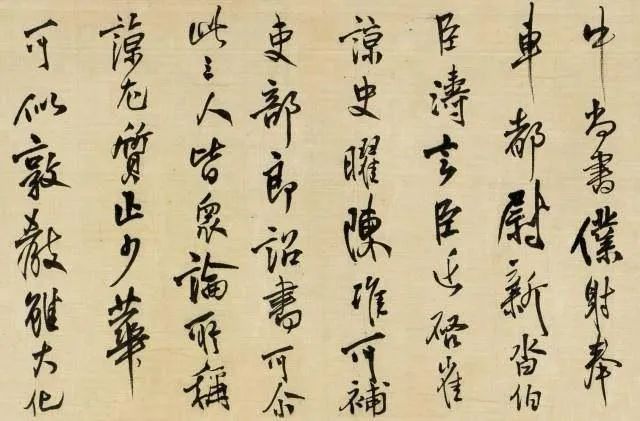 中尚書僕射奉
車都尉新沓伯
臣濤言臣近啓崔
諒史曜陳准可補
吏部郎詔書可尒
此三人皆衆論所稱
諒尤質正少華
可以敦教雖大化